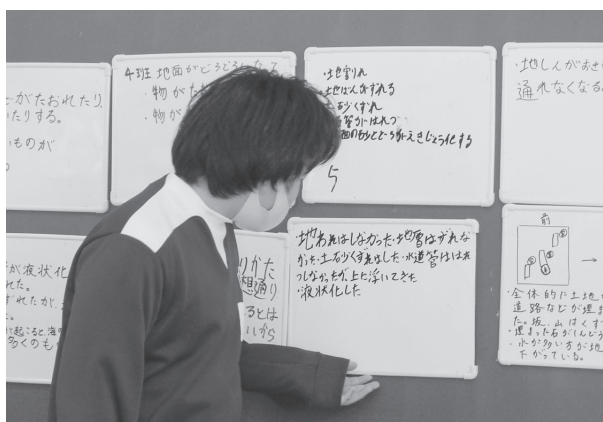 ーがたおれたり、
いたりする。
いものが
4班 地面がどろどろになって
・物が
・物が
・地割れ
・地ばんがずれる
砂くずれ
管がはれつ
面の砂とどろがえきじょう化する
5
・地しんがおき
通れなくなる。
が液状化
れた。
ずれたが、
起こると、海の
多くのも
りかた
想通り
るとは
いから
・地われはしなかった・地層はずれな
かった・土石少くずれはした・水道管ははれ
つしなかったが上に浮いてきた
・液状化した
前
→
・全体的に土地
道路などが埋ま
た。坂、山はくず
・埋まった石が
・水が多い方が地
下がっている。